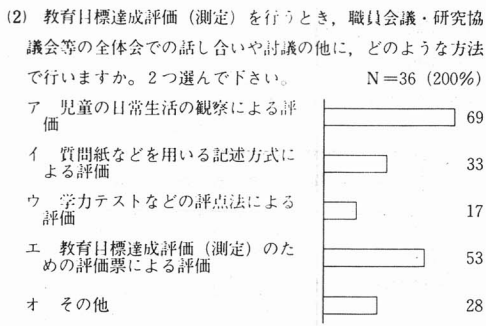 (2) 教育目標達成評価（測定）を行うとき，職員会議・研究協
議会等の全体会での話し合いや討議の他に，どのような方法
で行いますか。2つ選んで下さい。 N＝36（200％）
ア 児童の日常生活の観察による評
価 69
イ 質問紙などを用いる記述方式に
よる評価 33
ウ 学力テストなどの評点法による
評価 17
エ 教育目標達成評価（測定）のた
めの評価票による評価 53
オ その他 28